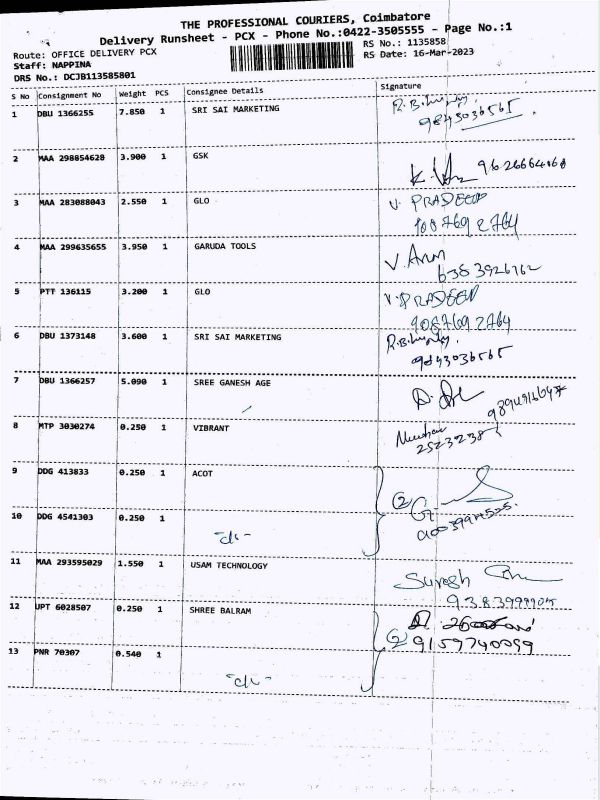 THE PROFESSIONAL COURIERS, Coimbatore
Delivery Runsheet - PCX - Phone No.:0422-3505555 - Page No.:1
Route: OFFICE DELIVERY PCX RS No.: 1135858
Staff: NAPPINA RS Date: 16-Mar-2023
DRS No.: DCJB113585801
S No Consignment No Weight PCS Consignee Details Signature
1 DBU 1366255 7.850 1 SRI SAI MARKETING
9843036565
2 MAA 298854628 3.900 1 GSK
3 MAA 283088043 2.550 1 GLO V. PRADEEP
4 MAA 299635655 3.950 1 GARUDA TOOLS V. Arun
6383926162
5 PTT 136115 3.200 1 GLO V. PRADEEP
9087692764
6 DBU 1373148 3.600 1 SRI SAI MARKETING
9843036565
7 DBU 1366257 5.090 1 SREE GANESH AGE
8 MTP 3030274 0.250 1 VIBRANT
9 DDG 413833 0.250 1 ACOT
10 DDG 4541303 0.250 1
11 MAA 293595029 1.550 1 USAM TECHNOLOGY Suresh
12 UPT 6028507 0.250 1 SHREE BALRAM
9159740099
13 PNR 70307 0.540 1